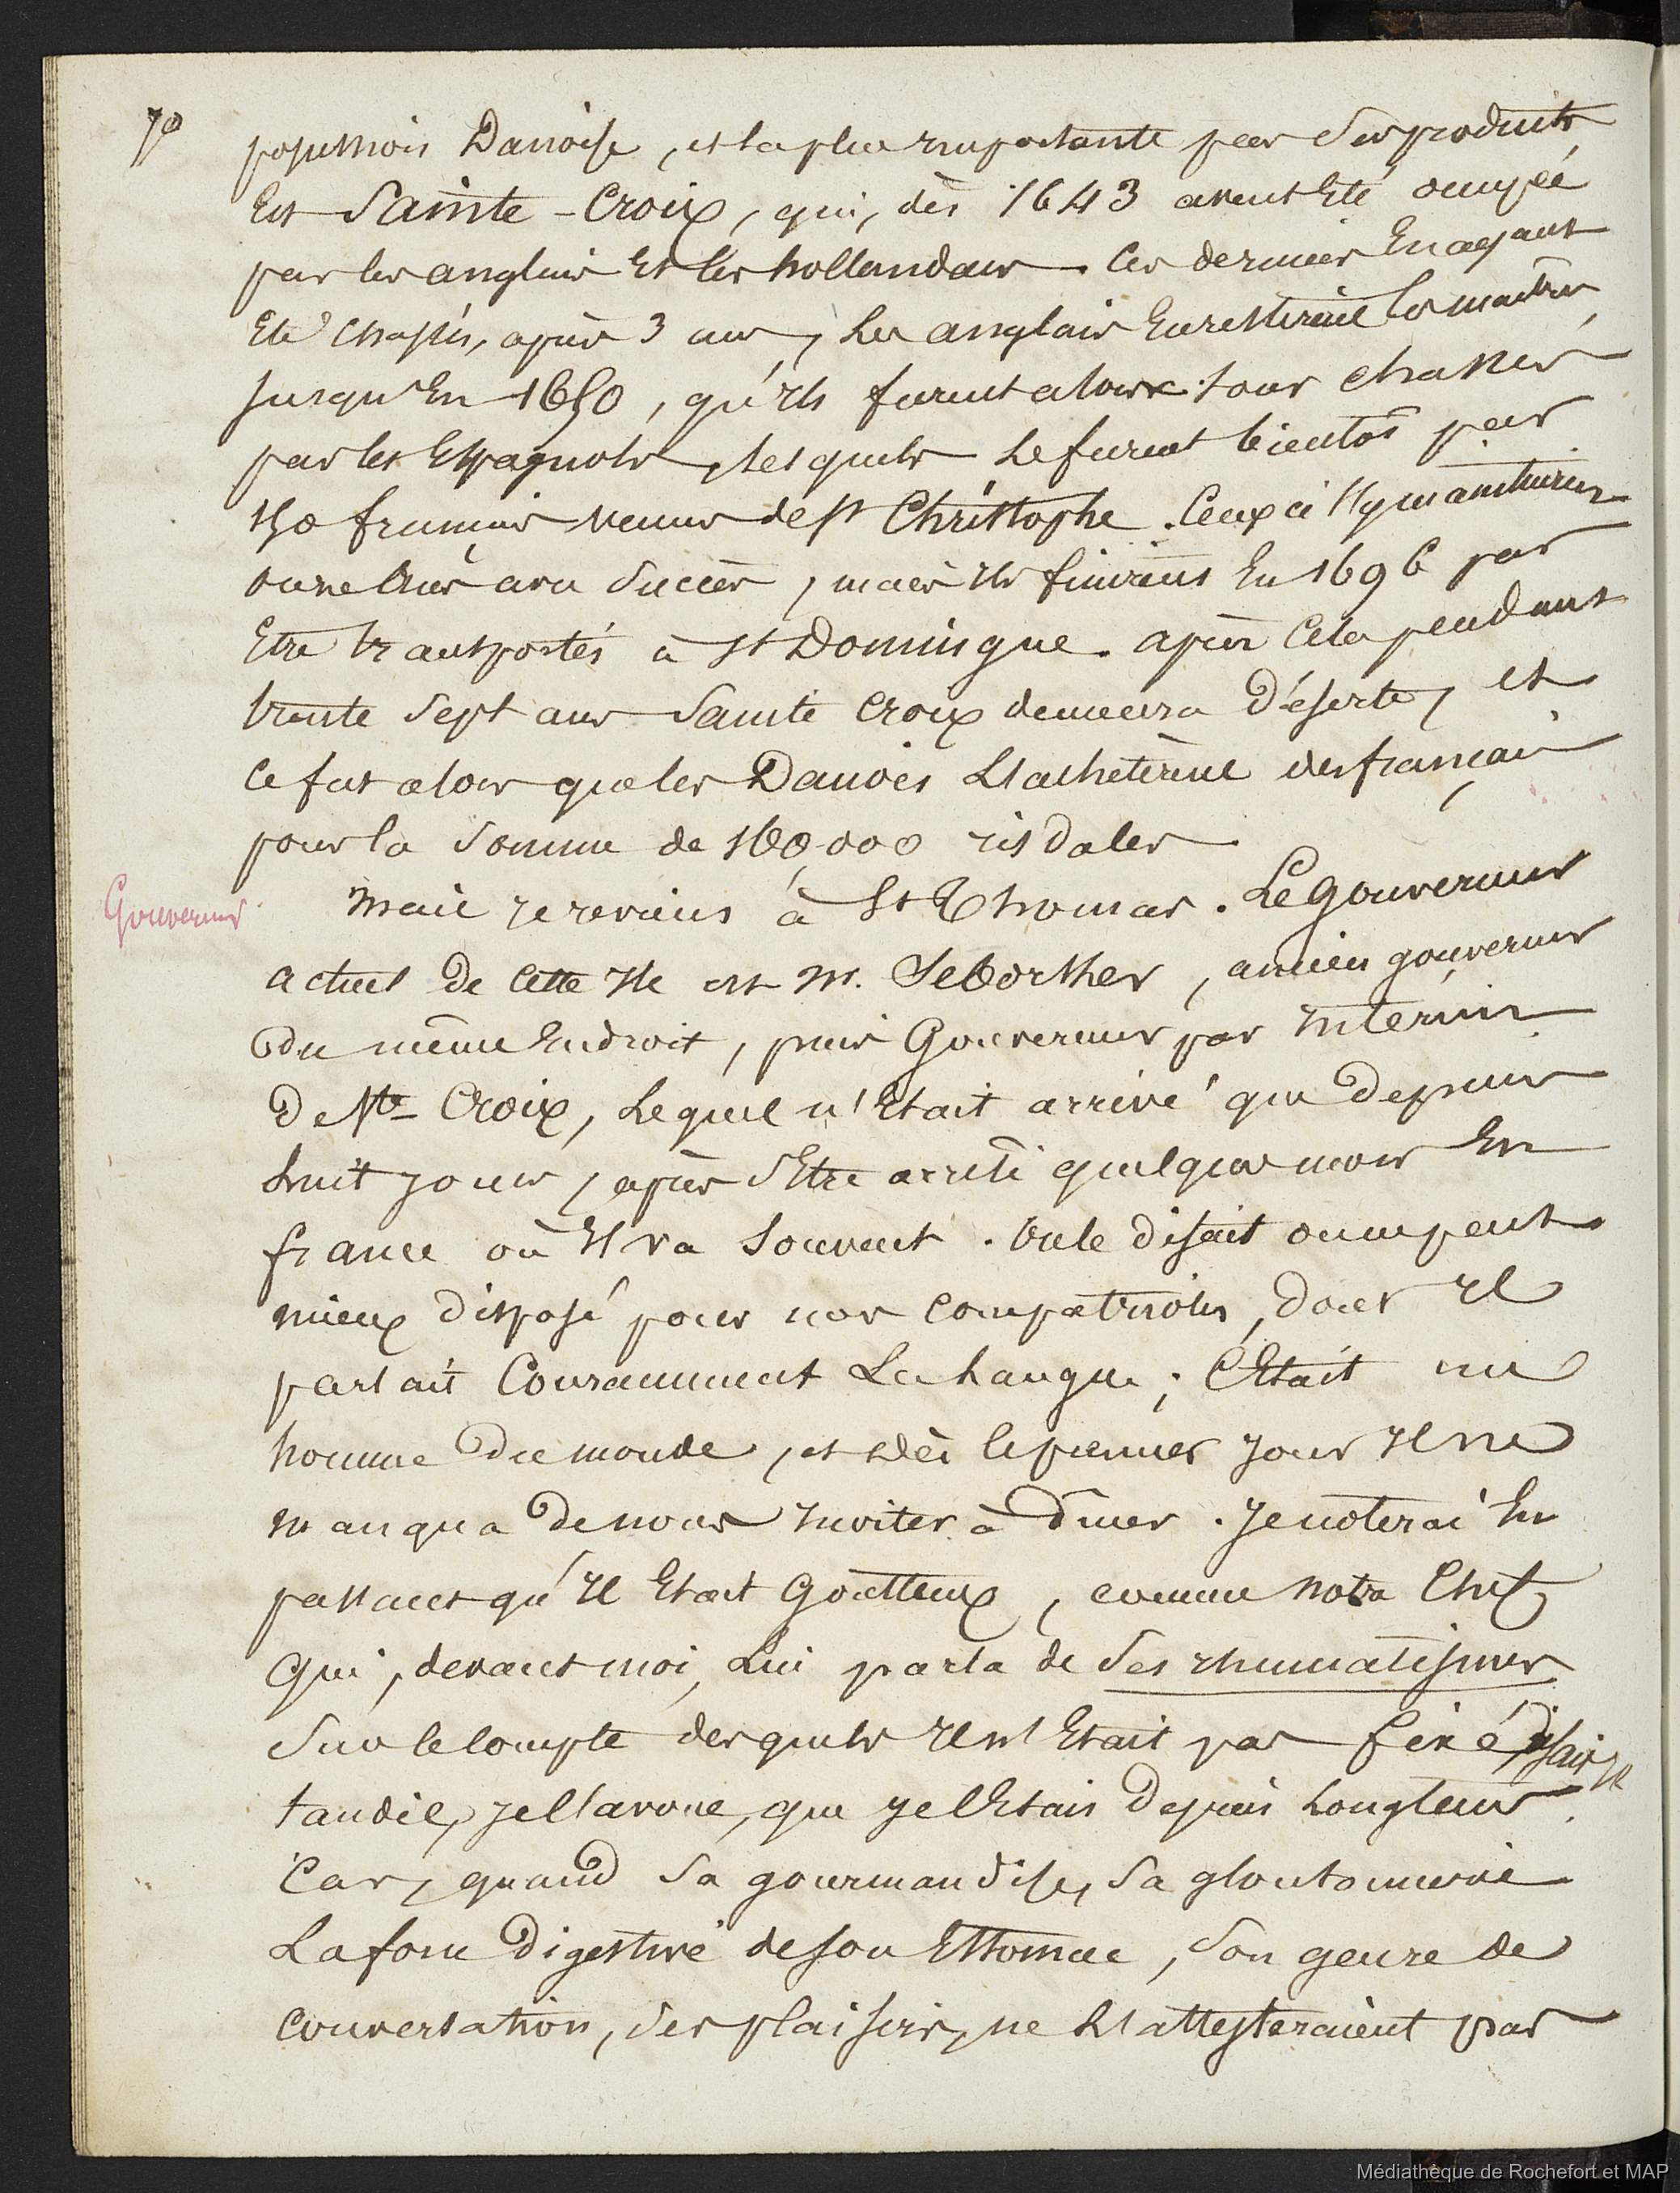 70
possession Danoise, et la plus importante par ses produits,
Est Sainte-Croix, qui, dès 1643 avait Eté occupée
par les anglais Et les hollandais. Ces derniers En ayant
Eté chassés, après 3 ans, Les anglais En restèrent les maîtres,
jusqu'En 1650, qu'ils furent alors tous chassés
par les Espagnols, lesquels Le furent bientôt par
français venus de St Christophe. Ceux ci s'y maintinrent
avec succès, mais ils finirent En 1696 par
Etre transportés à St Domingue. après Cela pendant
trente sept ans Sainte Croix demeura Déserte, et
Ce fut alors que les Danois L'achetèrent des français
pour la Somme de 160,000 risdales
Gouverneur
Mais je reviens à St Thomas. Le Gouverneur
actuel de Cette Ile est M. , ancien gouverneur
Du même Endroit, puis Gouverneur par Intérim
De Ste Croix, Lequel n'Etait arrivé que Depuis
huit jours, après s'Etre arrêté quelques mois En
france où Il va Souvent. On le disait on ne peut
mieux Disposé pour nos Compatriotes, dont Il
parlait Couramment La Langue; C'Etait un
homme Du monde, et dès le premier jour Il ne
manqua De nous Inviter à Dîner. Je noterai En
passant qu'Il Etait Goutteux, comme notre Chef
Qui, devant moi, Lui parla de Ses rhumatismes
Sur le Compte desquels Il n'Etait pas fixé, disait Il
tandis, je l'avoue, que je l'Etais Depuis Longtems.
Car, quand Sa gourmandise, Sa gloutonnerie
La force Digestive de son Estomac, Son genre de
Conversation, Ses plaisirs, ne L'attesteraient pas